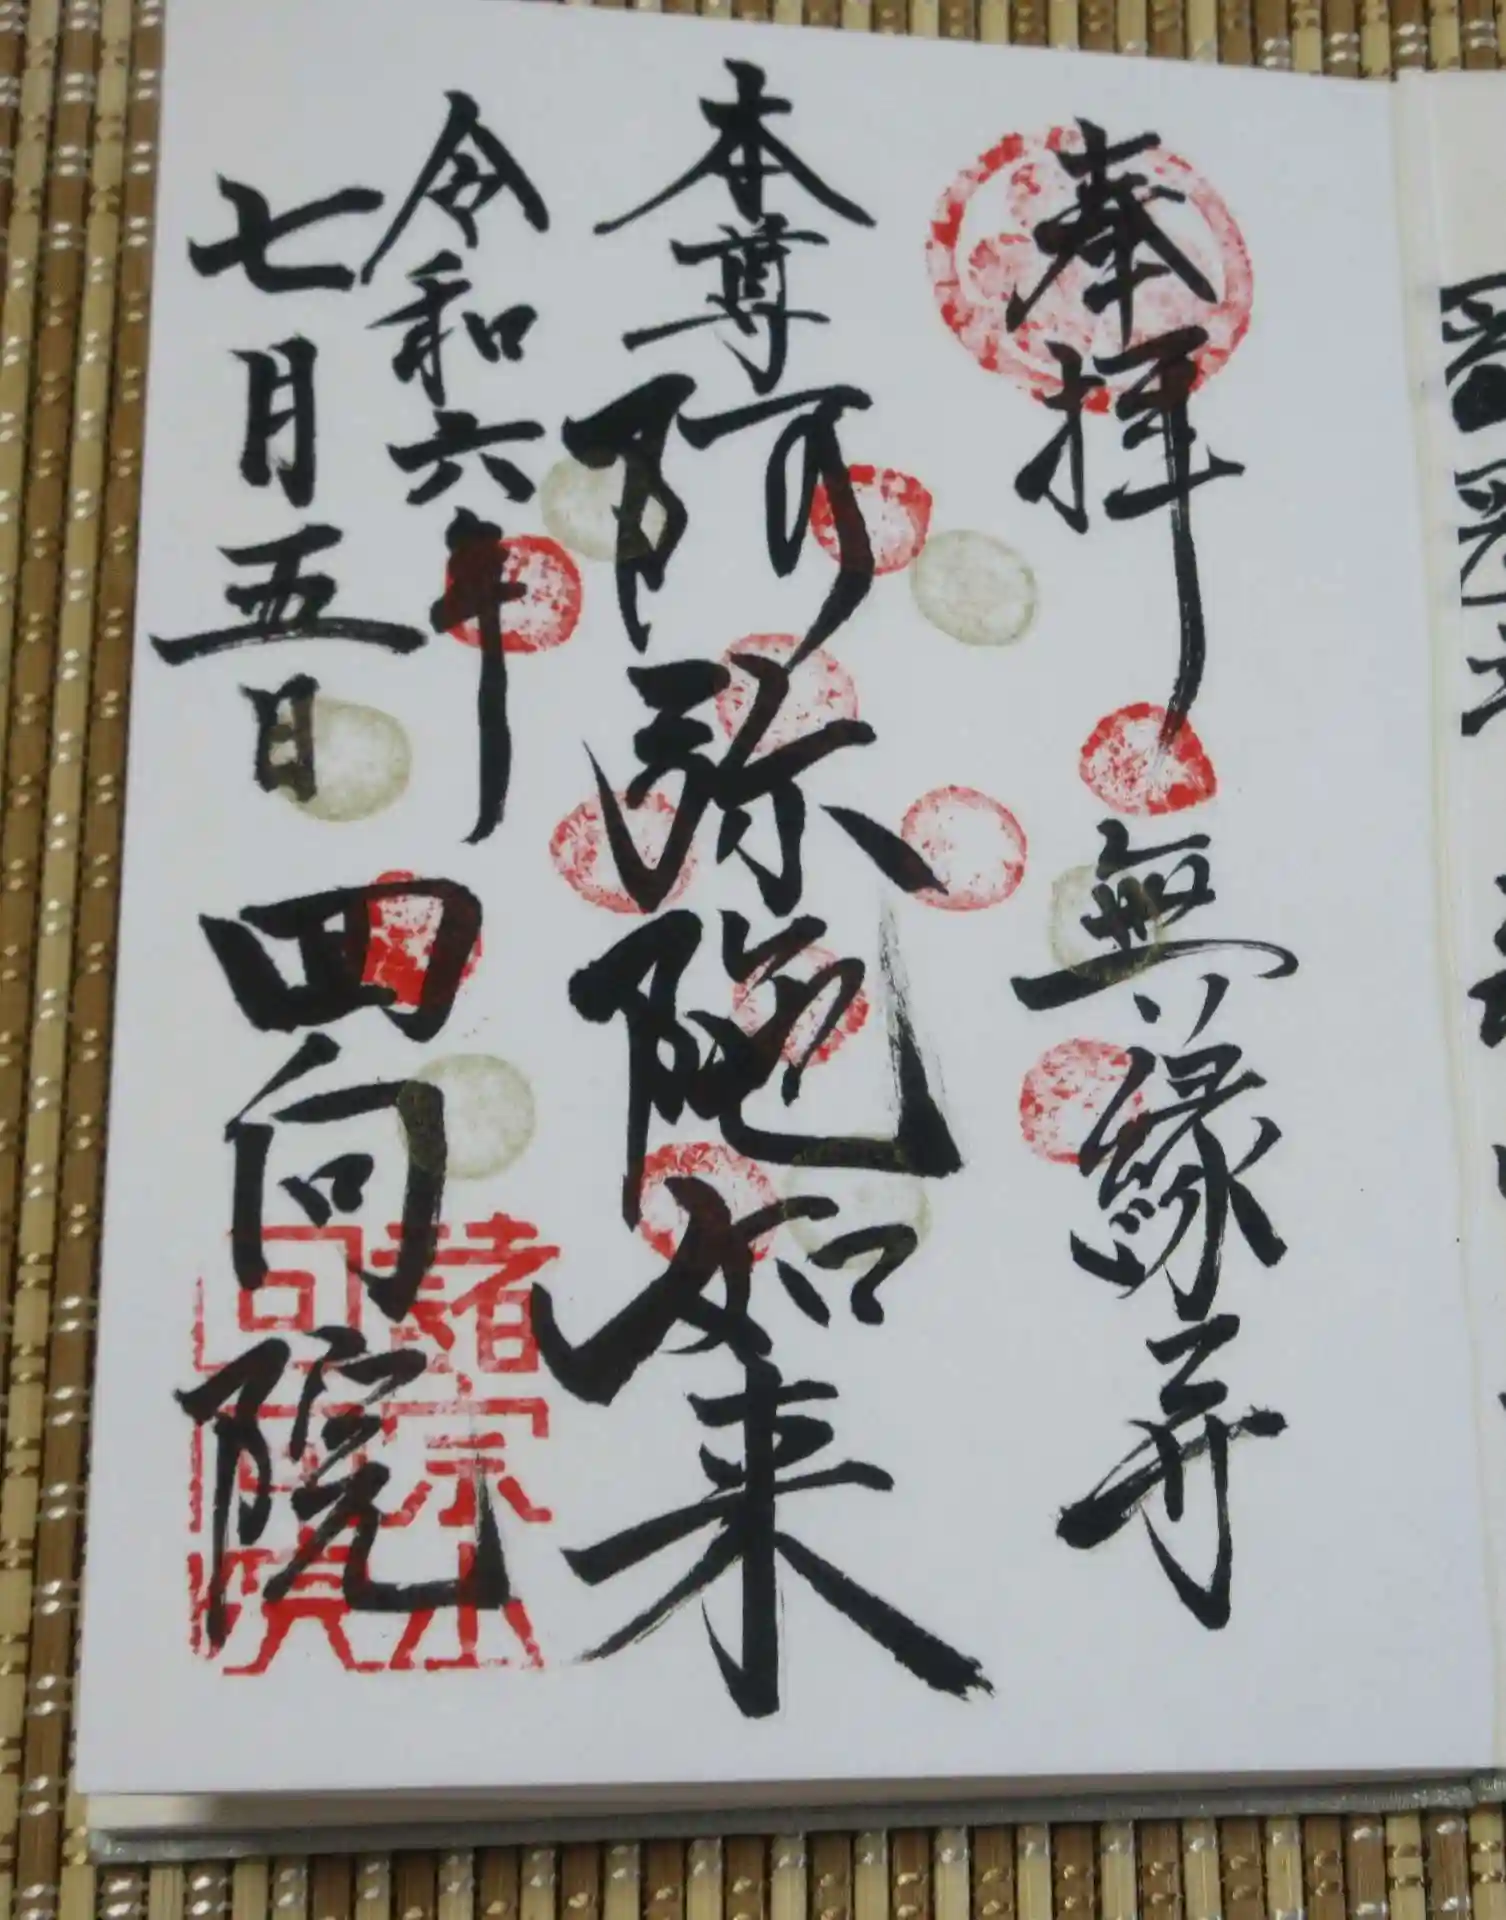 奉拝 無縁寺
本尊 阿弥陀如来
令和六年
七月五日 回向院
諸宗山